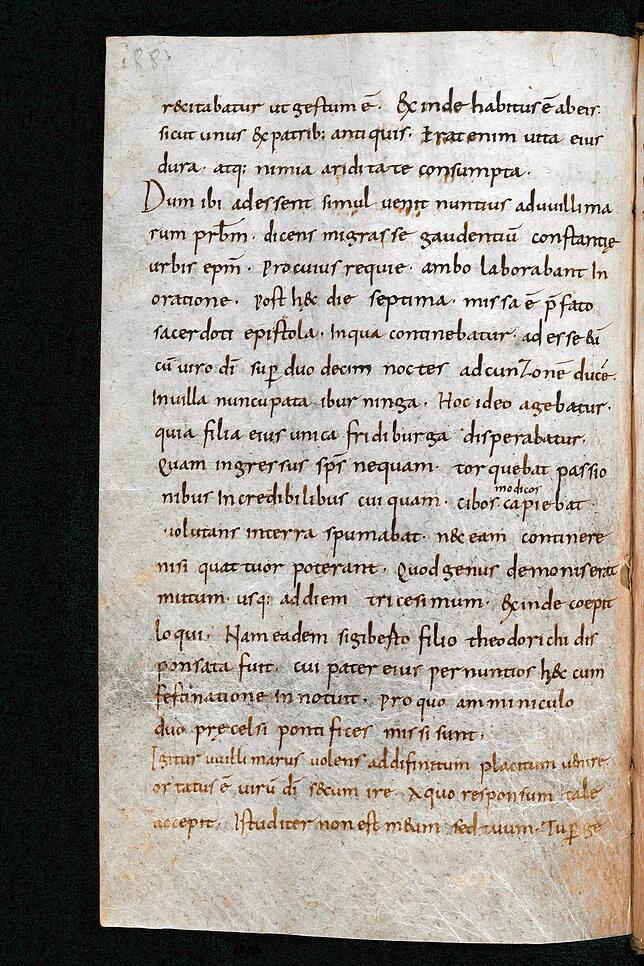 188
r&citabatur ut gestum ē. &xinde habitus ē ab eis
sicut unus &x patrib; antiquis. Erat enim uita eius
dura. atq; nimia ariditate consumpta.
Dum ibi adessent simul uenit nuntius ad uuillima
rum prb̄m. dicens migrasse gaudentiū constantię
urbis epm̄. Pro cuius requie. ambo laborabant In
oratione. Post h&c die septima. missa ē p̄fato
sacerdoti epistola. In qua continebatur. adesse &i
cū uiro dī. sup̄ duodecim noctes ad cunzonē ducē.
In uilla nuncupata iburninga. Hoc ideo agebatur.
quia filia eius unica fridiburga disperabatur.
Quam ingressus sp̄s nequam. torquebat passio
nibus Incredibilibus cui quam. cibos capiebat
modicos
uolutans in terra spumabat. n&c eam continere
nisi quattuor poterant. Quod genus demonis erat
mutum. usq; ad diem tricesimum. &xinde coepit
loqui. Nam eadem sigibesto filio theodorichi dis
ponsata fuit. cui pater eius per nuntios h&c cum
festinatione Innotuit. Pro quo amminiculo
duo pręcelsi pontifices missi sunt;
Igitur uuillimarus uolens ad difinitum placitum uenire.
ortatus ē uirū dī secum ire. A quo responsum tale
accepit. Istud iter non est meum sed tuum. Tu p̄ge